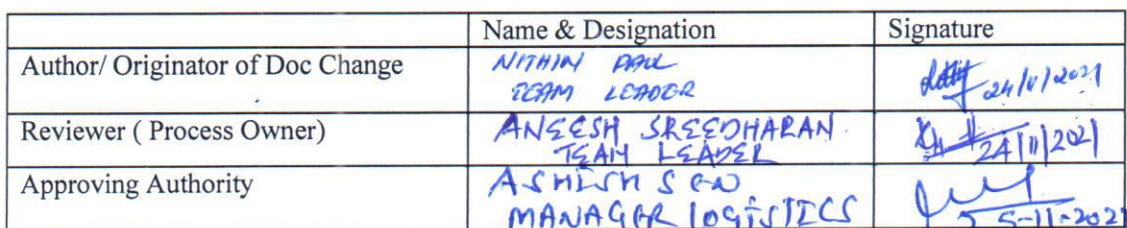 Name & Designation Signature
Author/ Originator of Doc Change NITHIN PAUL
TEAM LEADER 24/11/2021
Reviewer ( Process Owner) ANEESH SREEDHARAN
TEAM LEADER 24/11/2021
Approving Authority ASHISH SEN
MANAGER LOGISTICS 5-11-2021